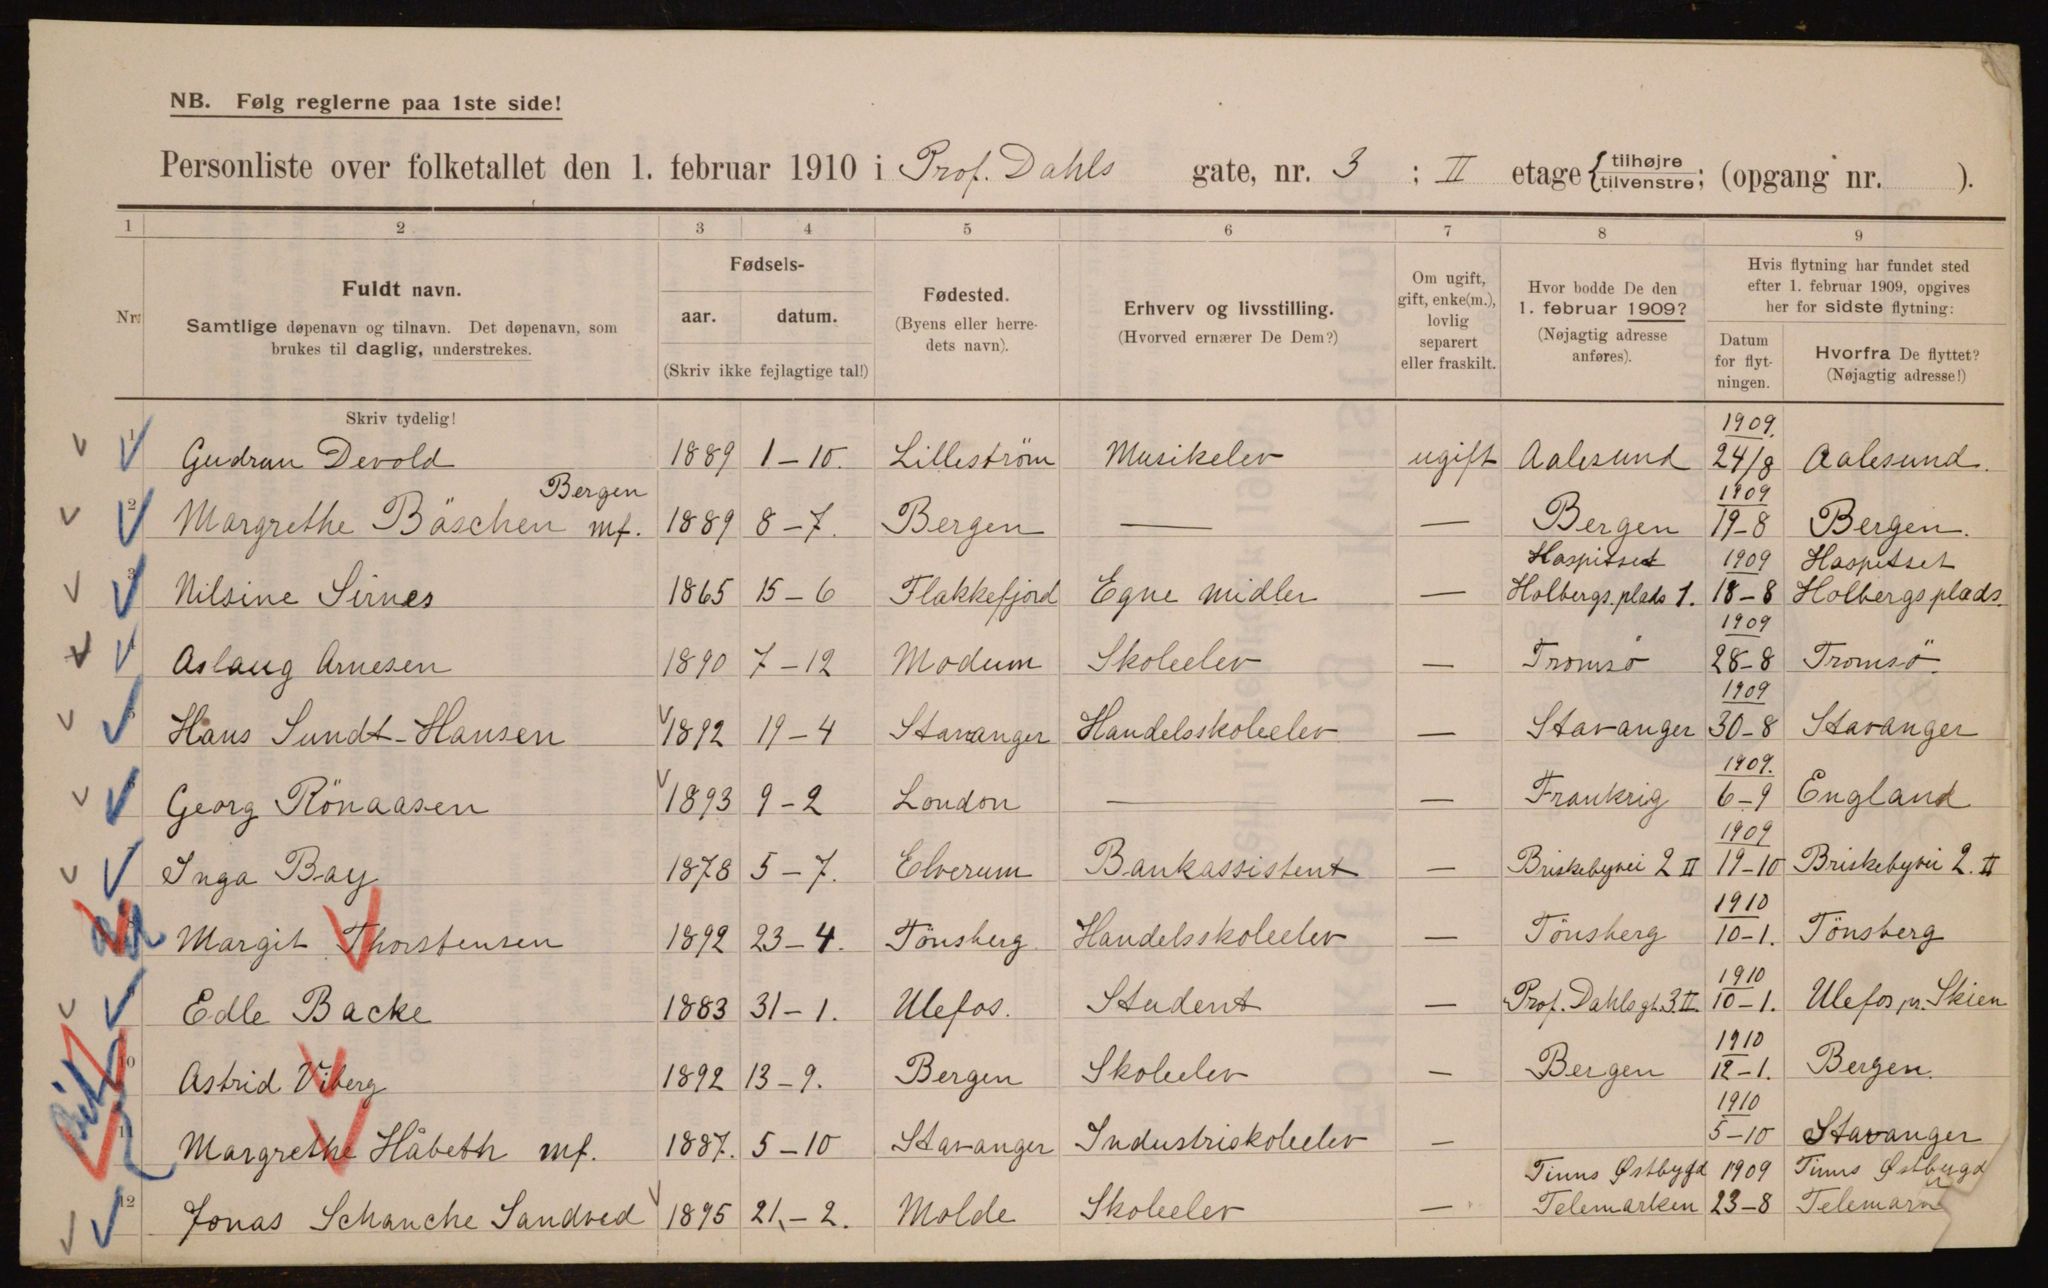 NB. Følg reglerne paa 1ste side!
Personliste over folketallet den 1. februar 1910 i Prof. Dahls gate, nr. 3 ; II etage { tilhøjre / tilvenstre ; (opgang nr. ).
1 2 3 4 5 6 7 8 9
Nr.
Fuldt navn.
Samtlige døpenavn og tilnavn. Det døpenavn, som
brukes til daglig, understrekes.
Fødsels-
aar. datum.
(Skriv ikke fejlagtige tal!)
Fødested.
(Byens eller herre-
dets navn).
Erhverv og livsstilling.
(Hvorved ernærer De Dem?)
Om ugift,
gift, enke(m.),
lovlig
separert
eller fraskilt.
Hvor bodde De den
1. februar 1909?
(Nøjagtig adresse
anføres).
Hvis flytning har fundet sted
efter 1. februar 1909, opgives
her for sidste flytning:
Datum
for flyt-
ningen.
Hvorfra De flyttet?
(Nøjagtig adresse!)
Skriv tydelig!
1909.
1 Gudrun Devold 1889 1–10. Lilleström Musikelev ugift Aalesund 24/8 Aalesund.
Bergen 1909
2 Margrethe Bäschen mf. 1889 8–7. Bergen — — Bergen 19–8 Bergen.
Hospitset 1909 Hospitset
3 Nilsine Sirnes 1865 15–6 Flakkefjord Egne midler — Holbergs.plads 1. 18–8 Holbergs plads.
1909
4 Aslaug Arnesen 1890 7–12 Modum Skoleelev — Tromsø 28–8 Tromsö.
1909
Hans Sundt-Hansen 1892 19–4 Stavanger Handelsskoleelev — Stavanger 30–8 Stavanger
1909.
Georg Rönaasen 1893 9–2 London — — Frankrig 6–9 England
1909
Inga Bay 1878 5–7. Elverum Bankassistent — Briskebyvei 2 II 19–10 Briskebyvei 2. II
1910
Margit Thorstensen 1892 23–4. Tönsberg Handelsskoleelev — Tönsberg 10–1. Tönsberg
1910
Edle Backe 1883 31–1. Ulefos. Student — Prof. Dahls gt. 3. II. 10–1. Ulefos pr. Skien
1910
10 Astrid Viberg 1892 13–9. Bergen Skoleelev — Bergen 12–1. Bergen.
1910
Margrethe Håbeth mf. 1887. 5–10 Stavanger Industriskoleelev — 5–10 Stavanger
Tinns Østbygd 1909 Tinns Østbygd
12 Jonas Schanche Sandved 1895 21–2. Molde Skoleelev — Telemarken 23–8